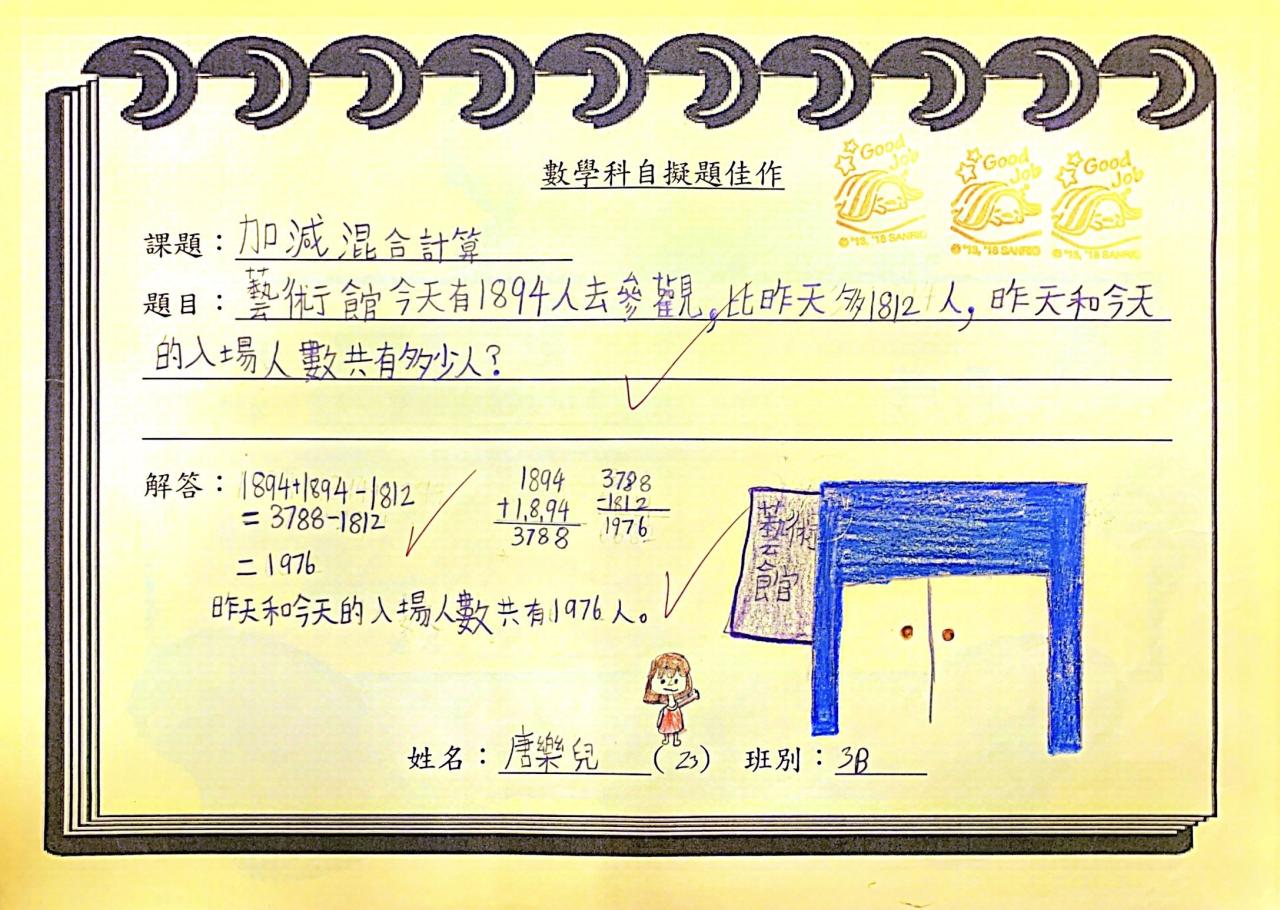 數學科自擬題佳作
Good Job
Good Job
Good Job
© '13, '18 SANRIO
© '13, '18 SANRIO
© '13, '18 SANRIO
課題：加減混合計算
題目：藝術館今天有1894人去參觀，比昨天多1812人，昨天和今天
的入場人數共有多少人？
解答：1894+1894-1812
= 3788-1812
= 1976
1894
+1,8,94
3788
3788
-1812
1976
昨天和今天的入場人數共有1976人。
藝術
館
姓名：唐樂兒 (23) 班別：3B